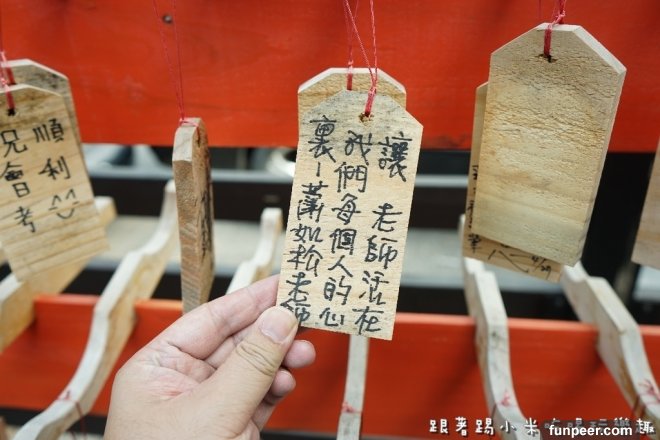 會考
順利
讓 老師活在
我們每個人的心
裏-蕭如松老師
跟著踢小米吃喝玩樂趣
funpeer.com